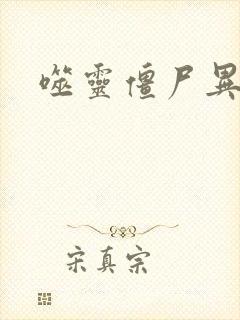 噬靈僵尸異
宋真宗